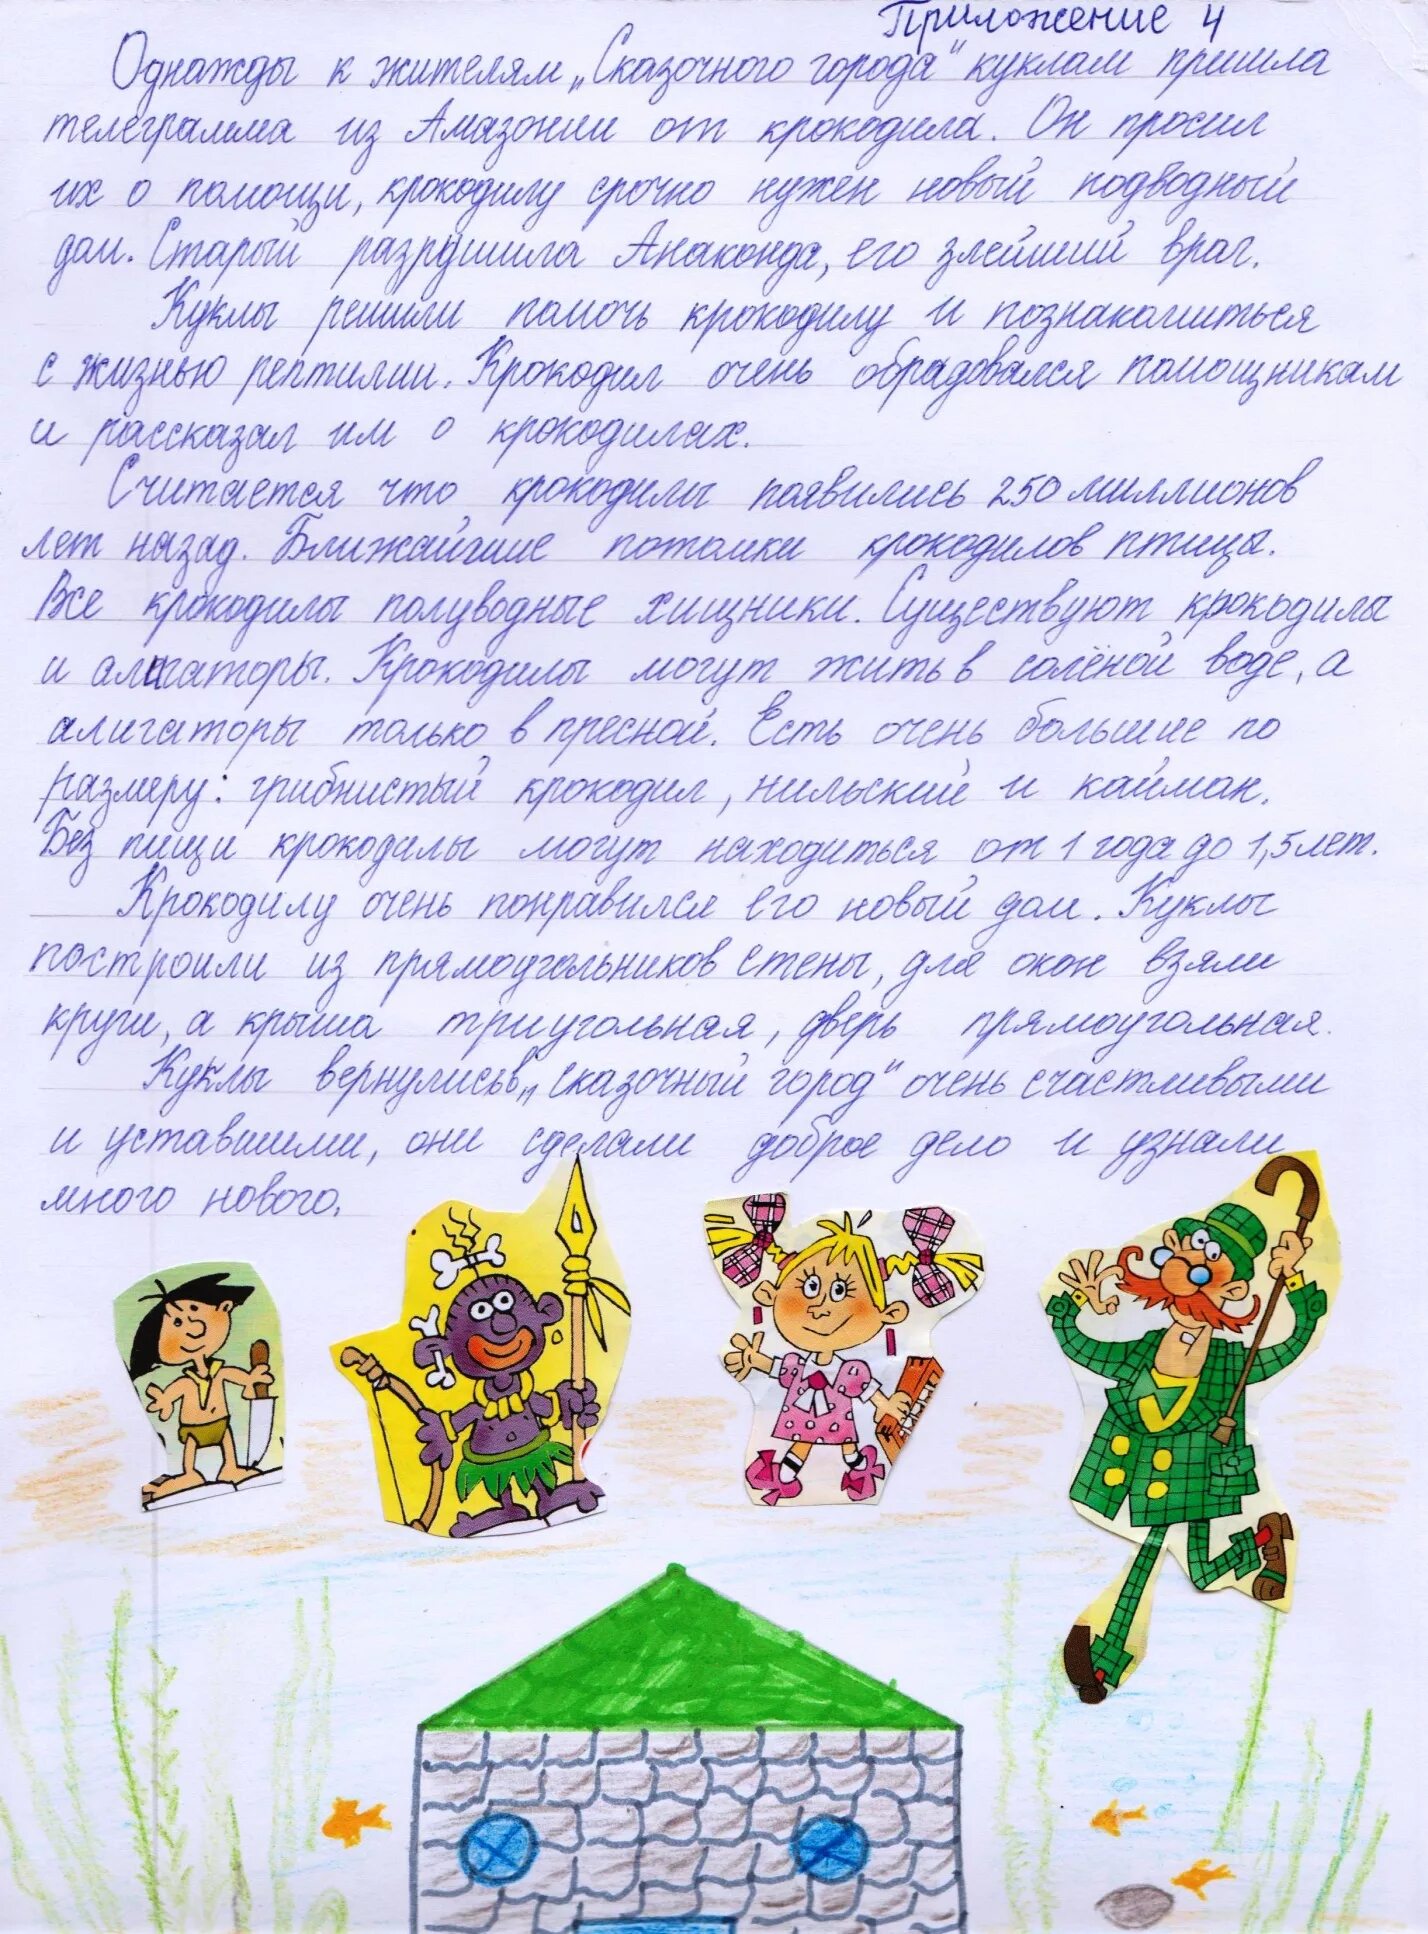 Приложение 4
Однажды к жителям „Сказочного города" куклам пришла
телеграмма из Амазонии от крокодила. Он просил
их о помощи, крокодилу срочно нужен новый подводный
дом. Старый разрушила Анаконда, его злейший враг.
Куклы решили помочь крокодилу и познакомиться
с жизнью рептилии. Крокодил очень обрадовался помощникам
и рассказал им о крокодилах.
Считается что крокодилы появились 250 миллионов
лет назад. Ближайшие потомки крокодилов птицы.
Все крокодилы полуводные хищники. Существуют крокодилы
и алигаторы. Крокодилы могут жить в солёной воде, а
алигаторы только в пресной. Есть очень большие по
размеру: грибнистый крокодил, нильский и кайман.
Без пищи крокодилы могут находиться от 1 года до 1,5 лет.
Крокодилу очень понравился его новый дом. Куклы
построили из прямоугольников стены, для окон взяли
круги, а крыша триугольная, дверь прямоугольная.
Куклы вернулись в „сказочный город" очень счастливыми
и уставшими, они сделали доброе дело и узнали
много нового.